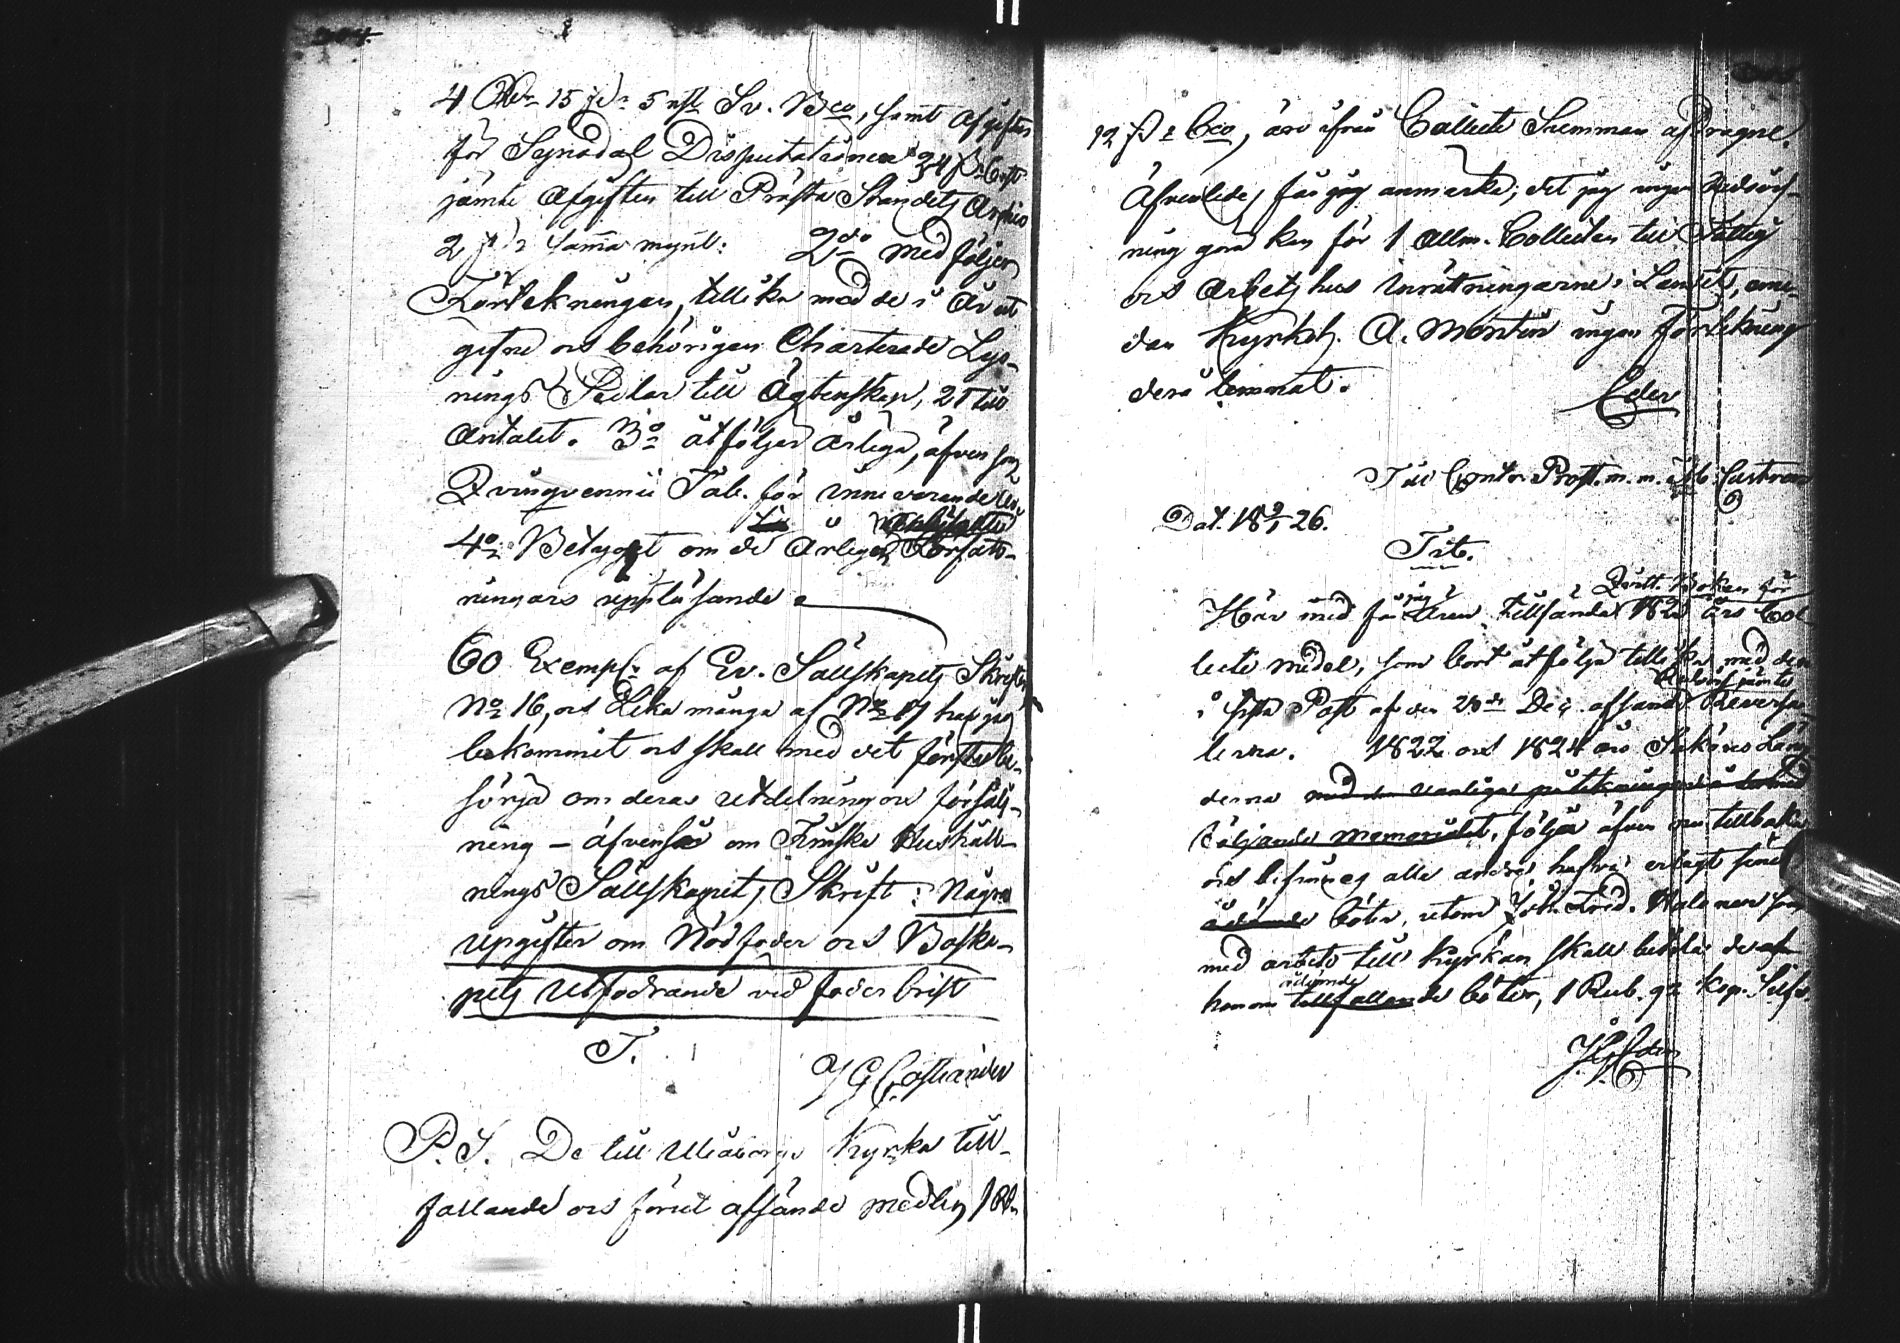 304.
4 Rdr 15 sk: 5 rst Sv. Bco, samt afgiften
för Synodal Disputationen 24 sk. Bco
jämte afgiften till Prästa Ståndets
2 sk: samma mynt: 2do Medföljer
Förtekningen, tillika med de i år ut
gifne och behörigen Charterade Lys-
nings Sedlar till Ägtenskap, 21 till
Antalet. 3o åtföljer årliga, äfvensom
Qvinqvennii Tab. för innevarande
4o: Betyget om de årligen Författ-
ningars uppläsande
60 Exempl: af Ev. Sällskapets Skrifter
No 16, och lika många af No 17 har jag
bekommit och skall med det första be-
sörja om deras utdelning och försälj-
ning – äfvenså om Finska Hushåll-
nings Sällskapets Skrift: Några
upgifter om Nödfoder och Boska-
pets Utfodrande vid foderbrist
T.
J G Costiander
P. S. De till Uleåborgs Kyrka till-
fallande och förut afsände medlen 1 Rd:
12 sk: Bco, äro ifrån Collect Summan afdragne.
Äfvenledes får jag anmärka, det jag ingen Redovis-
ning gora kan för 1 allm. Collecten till Fattig
och Arbetshus inrätningarne i Landet, eme-
dan Kyrkoh. A. Montin ingen förtekning
derå lemnat.
Eder
Till Contr. Prost. m. m. Castren
Dat. 18 9/1 26.
Tit.
Qvitt. Boken för
Här med får jag äran tillsända 182 års Col
lecte medel, som bort åtfölja tillika med den
jämte
i sista Post af den 28de Dec. afsände Reversa
lerna. 1822 och 1824 års Sakörs Läng
derna med den vanliga påtekningen å
följande Memorialet, följa äfven nu tillbaka
och befinnes alla andra hafva erlagt sine
ådömde böter, utom Joh. Fred. Halonen som
med arbete till kyrkan skall betala de af
ådömde
honom tillfallande böter, 1 Rub. 92 kop. Silfv.